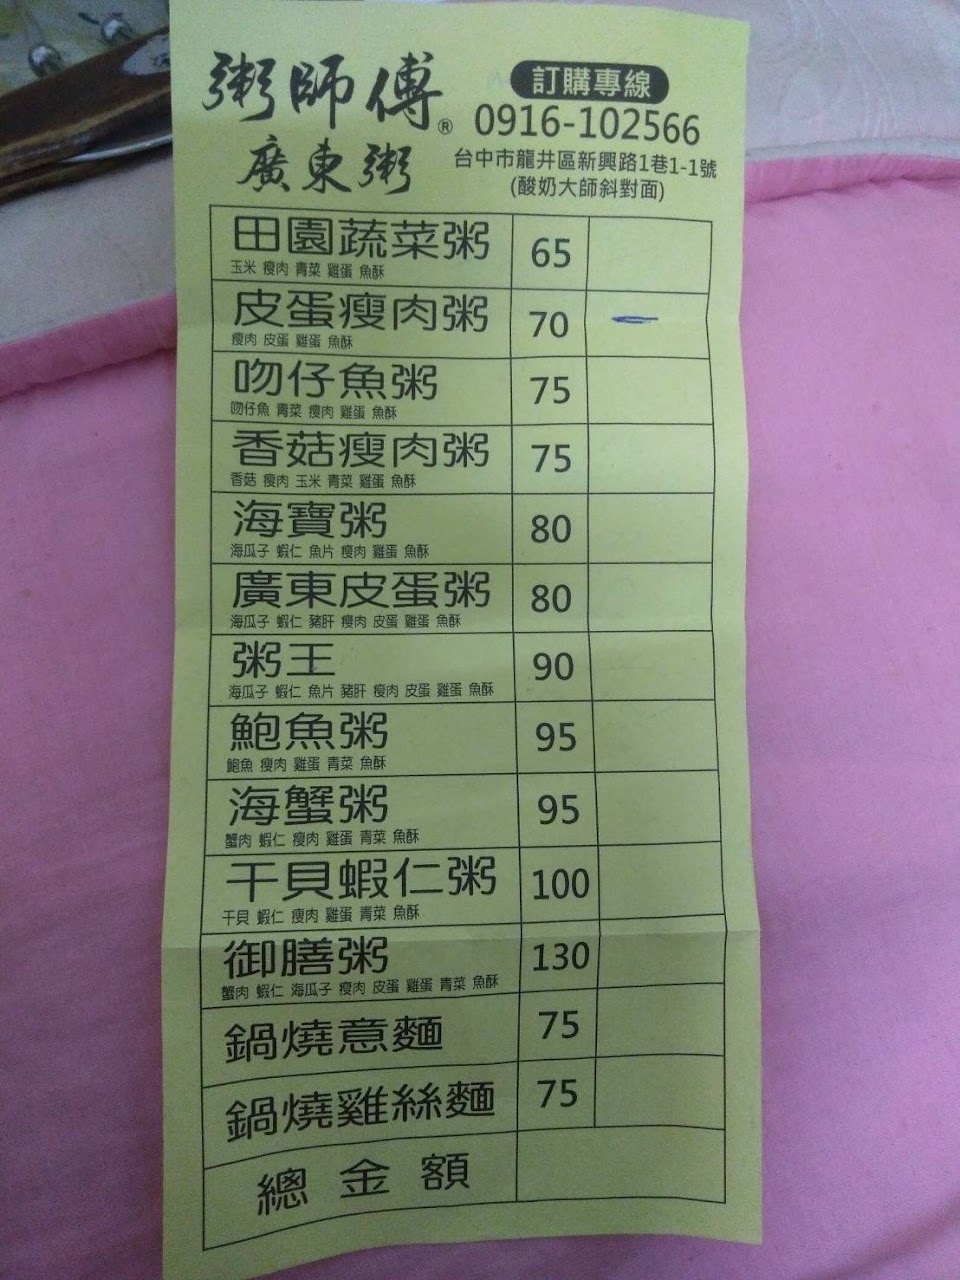 粥師傅®
廣東粥
訂購專線
0916-102566
台中市龍井區新興路1巷1-1號
(酸奶大師斜對面)
田園蔬菜粥 65
玉米 瘦肉 青菜 雞蛋 魚酥
皮蛋瘦肉粥 70 一
瘦肉 皮蛋 雞蛋 魚酥
吻仔魚粥 75
吻仔魚 青菜 瘦肉 雞蛋 魚酥
香菇瘦肉粥 75
香菇 瘦肉 玉米 青菜 雞蛋 魚酥
海寶粥 80
海瓜子 蝦仁 魚片 瘦肉 雞蛋 魚酥
廣東皮蛋粥 80
海瓜子 蝦仁 豬肝 瘦肉 皮蛋 雞蛋 魚酥
粥王 90
海瓜子 蝦仁 魚片 豬肝 瘦肉 皮蛋 雞蛋 魚酥
鮑魚粥 95
鮑魚 瘦肉 雞蛋 青菜 魚酥
海蟹粥 95
蟹肉 蝦仁 瘦肉 雞蛋 青菜 魚酥
干貝蝦仁粥 100
干貝 蝦仁 瘦肉 雞蛋 青菜 魚酥
御膳粥 130
蟹肉 蝦仁 海瓜子 瘦肉 皮蛋 雞蛋 青菜 魚酥
鍋燒意麵 75
鍋燒雞絲麵 75
總金額